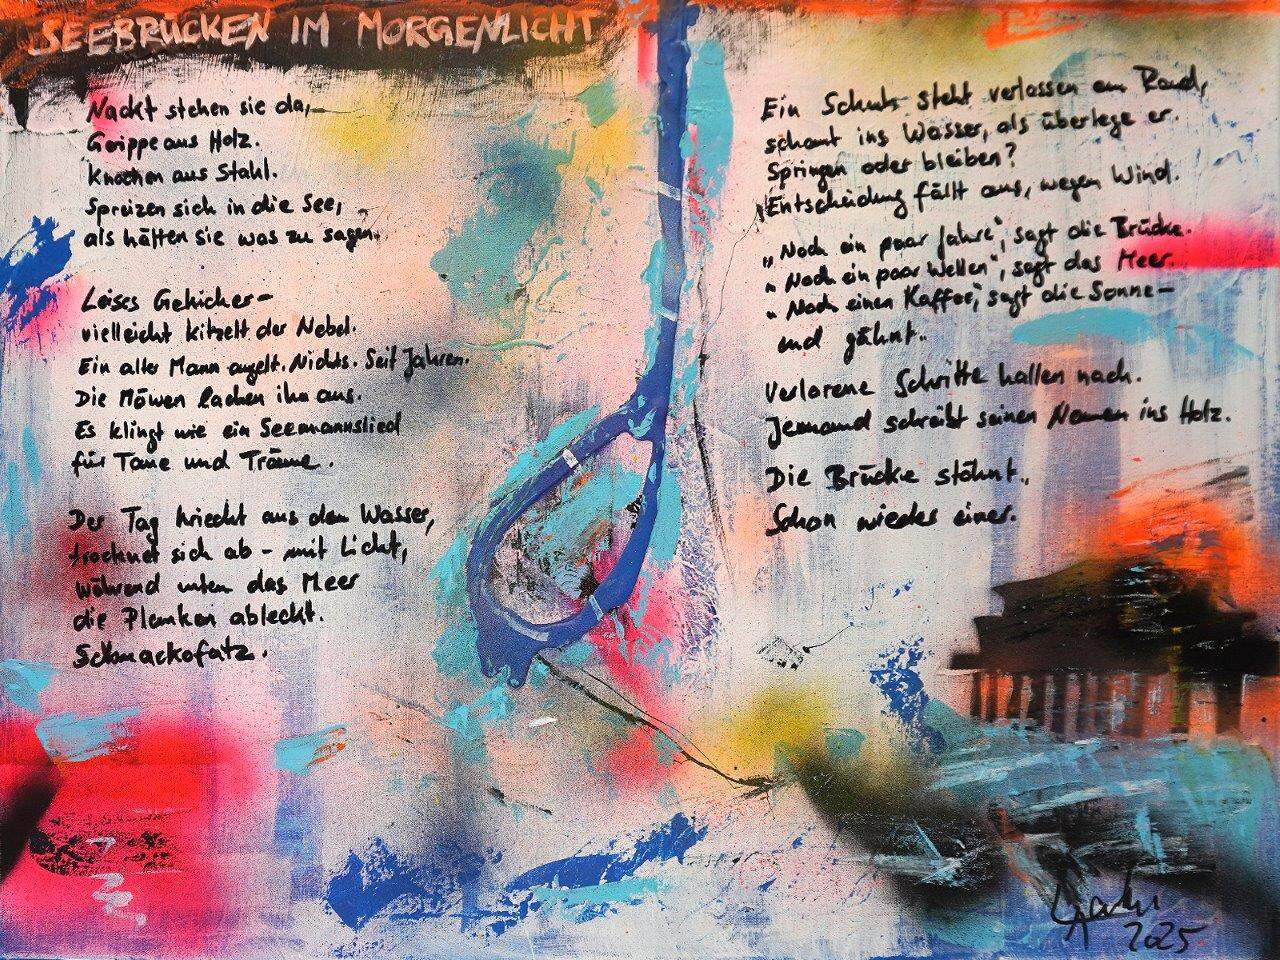 SEEBRÜCKEN IM MORGENLICHT
Nackt stehen sie da,
Gerippe aus Holz.
Knochen aus Stahl.
Spreizen sich in die See,
als hätten sie was zu sagen.
Leises Gekicher –
vielleicht kitzelt der Nebel.
Ein alter Mann angelt. Nichts. Seit Jahren.
Die Möwen lachen ihn aus.
Es klingt wie ein Seemannslied
für Taue und Träume.
Der Tag kriecht aus dem Wasser,
trocknet sich ab – mit Licht,
während unten das Meer
die Planken ableckt.
Schmackofatz.
Ein Schuh steht verlassen am Rand,
schaut ins Wasser, als überlege er.
Springen oder bleiben?
Entscheidung fällt aus, wegen Wind.
„Noch ein paar Jahre“, sagt die Brücke.
„Noch ein paar Wellen“, sagt das Meer.
„Noch einen Kaffee“, sagt die Sonne –
und gähnt..
Verlorene Schritte hallen nach.
Jemand schreibt seinen Namen ins Holz.
Die Brücke stöhnt..
Schon wieder einer.
2025